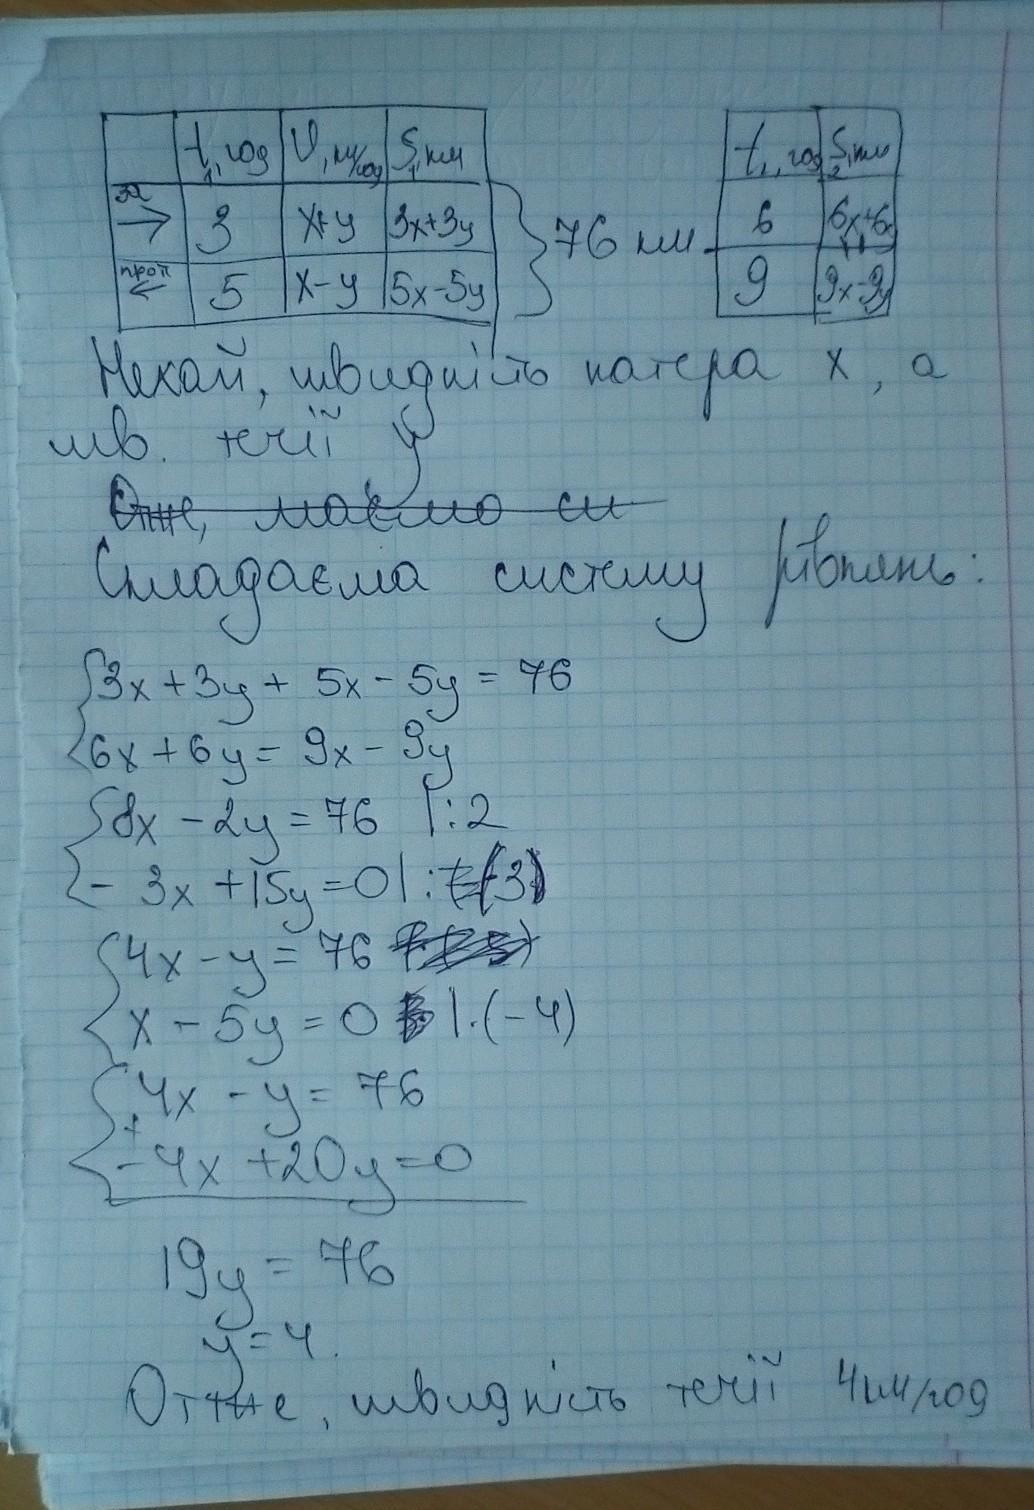 t₁, год V, км/год S₁, км
за → 3 x+y 3x+3y
проп ← 5 x-y 5x-5y
76 км
t₁, год S₂, км
6 6x+6
9 9x-9y
Нехай, швидкість катера x, а
шв. течії y
Отже, маємо си
Складаєма систему рівнянь:
3x+3y+ 5x-5y=76
6x+6y= 9x-9y
8x -2y=76 |:2
- 3x +15y=0|: (-3)
4x-y= 76
x-5y=0 |·(-4)
4x -y= 76
+
-4x +20y=0
19y=76
y=4.
Отже, швидкість течії 4км/год